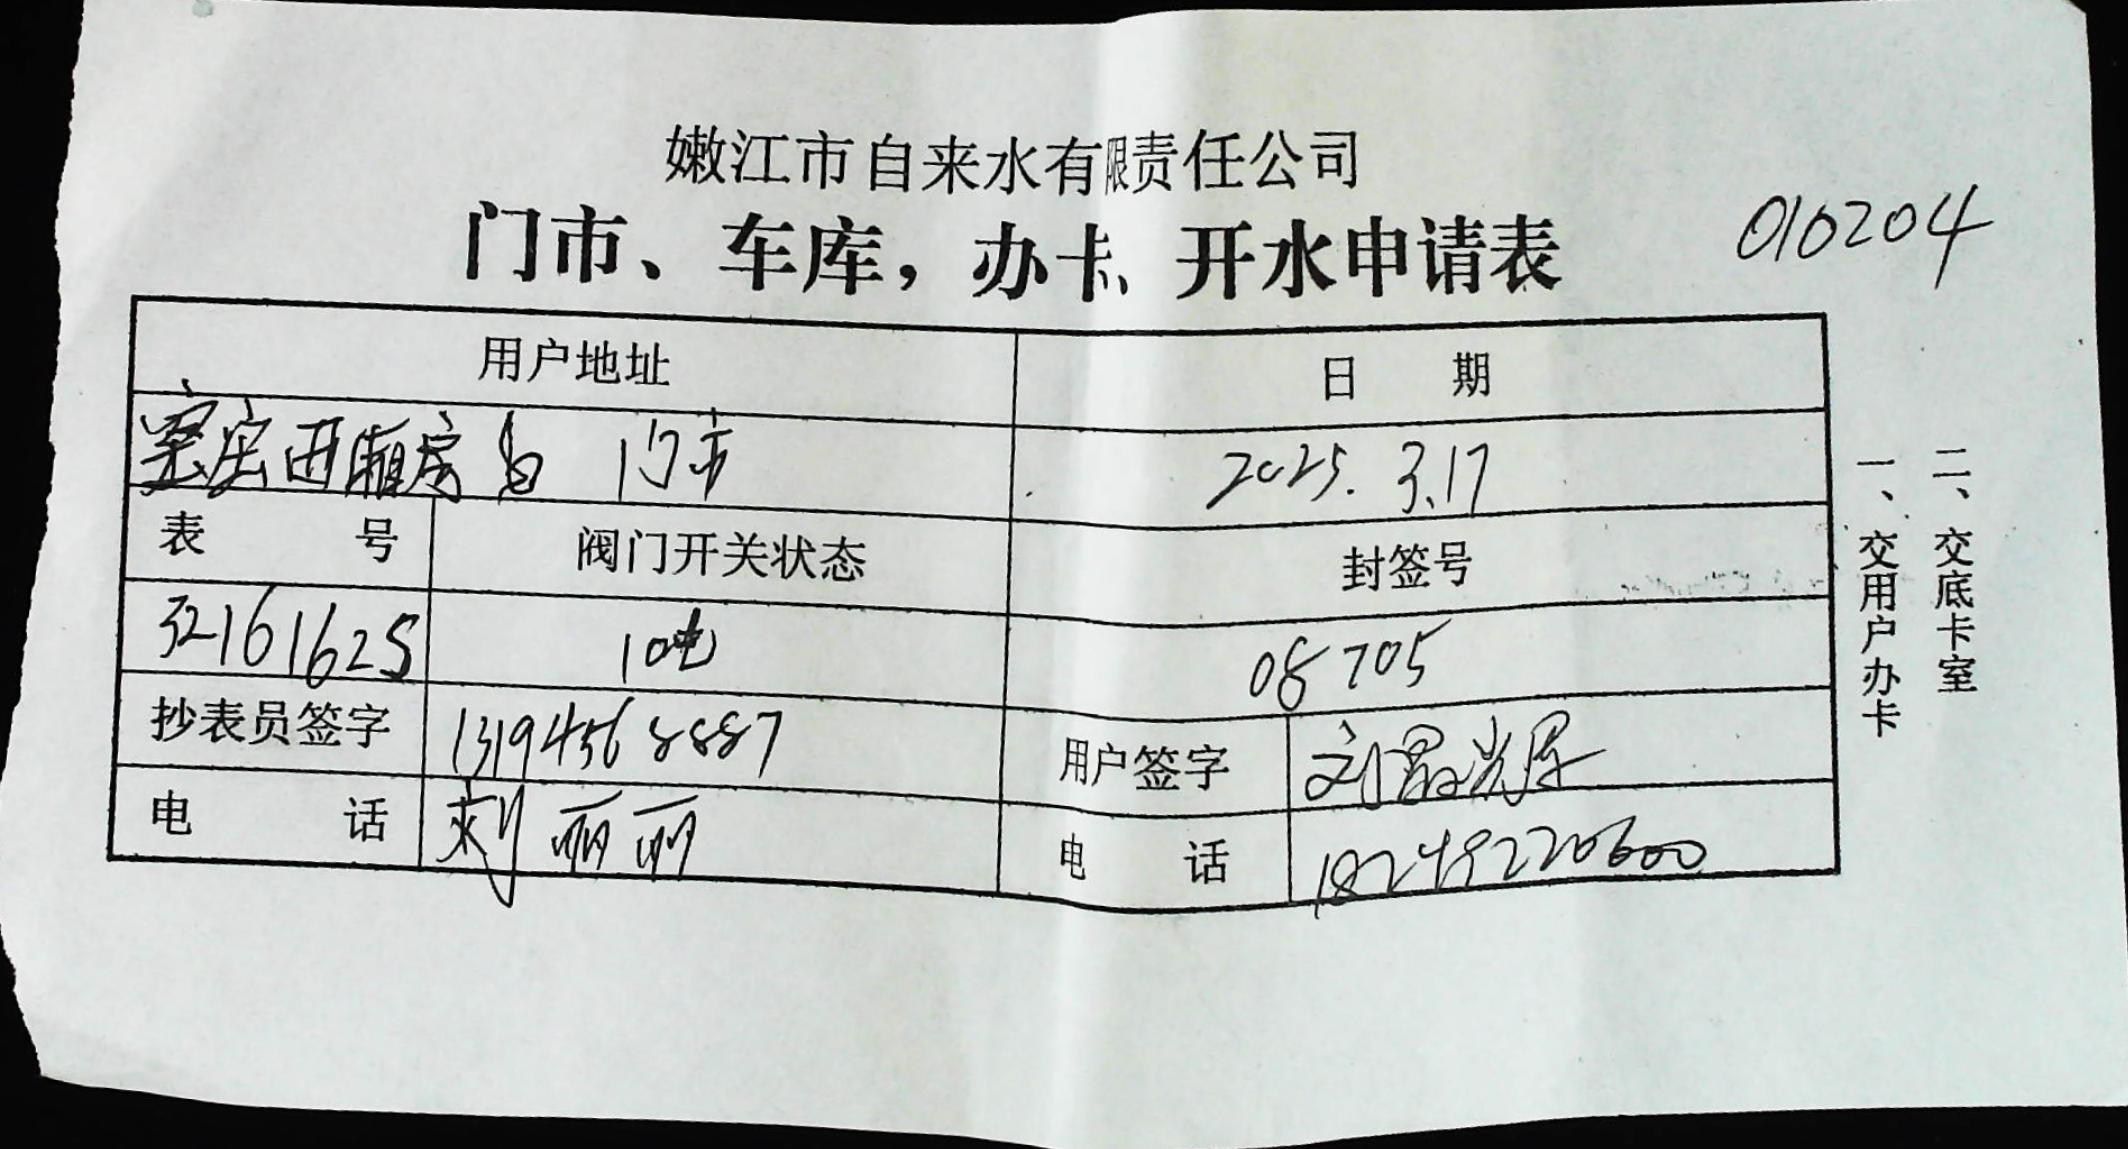 嫩江市自来水有限责任公司
门市、车库，办卡、开水申请表
010204
用户地址 日 期
西厢房 门市 2025.3.17
表 号 阀门开关状态 封签号
32161625 10吨 08705
抄表员签字 13194568887 用户签字 刘
电 话 刘丽丽 电 话 18249220600
一、交用户办卡
二、交底卡室